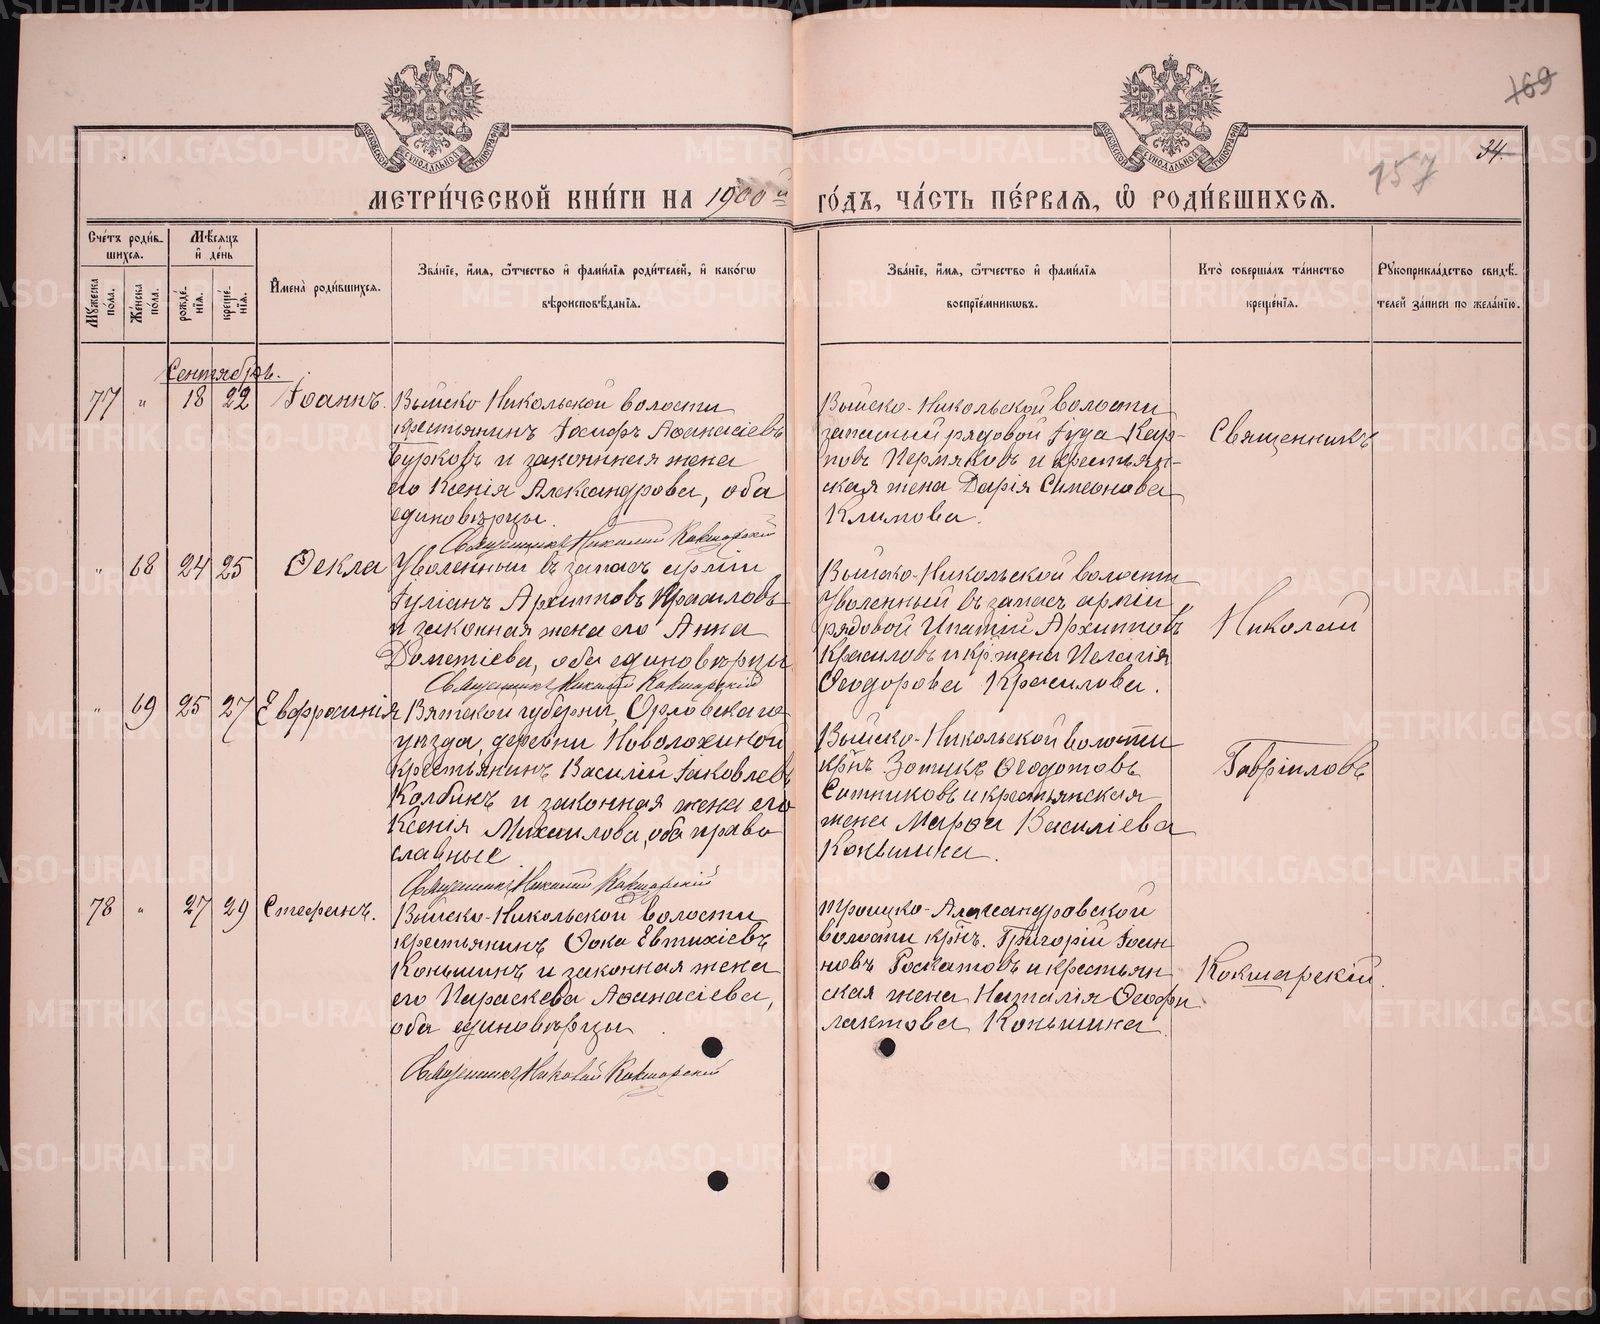 169
34.
157
МЕТРИ́ЧЕСКОЙ КНИ́ГИ НА 1900й ГО́ДЪ, ЧА́СТЬ ПЕ́РВАЯ, Ѽ РОДИ́ВШИХСЯ.
Сче́тъ роди́в-
шихся.
Мѣ́сяцъ
и҆ де́нь
Мꙋ́жеска по́ла.
Же́нска по́ла.
рожде́-
нїя.
креще́-
нїя.
И҆мена̀ роди́вшихся.
Зва́нїе, и҆́мя, ѻ҆́тчество и҆ фами́лїя роди́телей, и҆ како́гѡ
вѣроисповѣ́данїя.
Зва́нїе, и҆́мя, ѻ҆́тчество и҆ фами́лїя
воспрїе́мникѡвъ.
Кто̀ соверша́лъ та́инство
креще́нїя.
Рꙋкоприкла́дство свидѣ́-
телей за́писи по жела́нїю.
Сентябрь.
77 " 18 22 Іоаннъ.
Выйско-Никольской волости
крестьянинъ Іосифъ Аѳанасіевъ
Бурковъ и законная жена
его Ксенія Александрова, оба
единовѣрцы.
Священникъ Николай Кокшарскій
Выйско-Никольской волости
запасный рядовой Іуда Кар-
повъ Пермяковъ и крестьян-
ская жена Дарія Симеонова
Климова.
Священникъ
" 68 24 25 Ѳекла
Уволенный въ запасъ арміи
Іуліанъ Архиповъ Красиловъ
и законная жена его Анна
Дометіева, оба единовѣрцы
Священникъ Николай Кокшарскій
Выйско-Никольской волости
Уволенный въ запасъ арміи
рядовой Ипатій Архиповъ
Красиловъ и кр. жена Пелагія
Ѳеодорова Красилова.
Николай
" 69 25 27 Евфросинія
Вятской губерніи, Орловскаго
уѣзда, деревни Новолохиной
крестьянинъ Василій Іаковлевъ
Колбинъ и законная жена его
Ксенія Михаилова, оба право
славные
Священникъ Николай Кокшарскій
Выйско-Никольской волости
крнъ Зотикъ Ѳеодотовъ
Ситниковъ и крестьянская
жена Марѳа Василіева
Коньшина.
Гавріиловъ
78 " 27 29 Стефанъ.
Выйско-Никольской волости
крестьянинъ Ѳока Евтихіевъ
Коньшинъ и законная жена
его Параскева Аѳанасіева,
оба единовѣрцы.
Священникъ Николай Кокшарскій
Троицко-Александровской
волости крнъ. Григорій Іоан
новъ Роскатовъ и крестьян
ская жена Наталія Ѳеофи
лактова Коньшина.
Кокшарскій.
METRIKI.GASO-URAL.RU